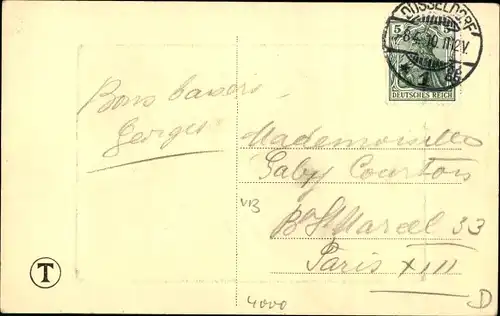 DÜSSELDORF
11-12V.
1
5
5
DEUTSCHES REICH
Bons baisers
Georges
Mademoiselle
Gaby Courtois
Bd St Marcel 33
Paris XIII
T
4000
D